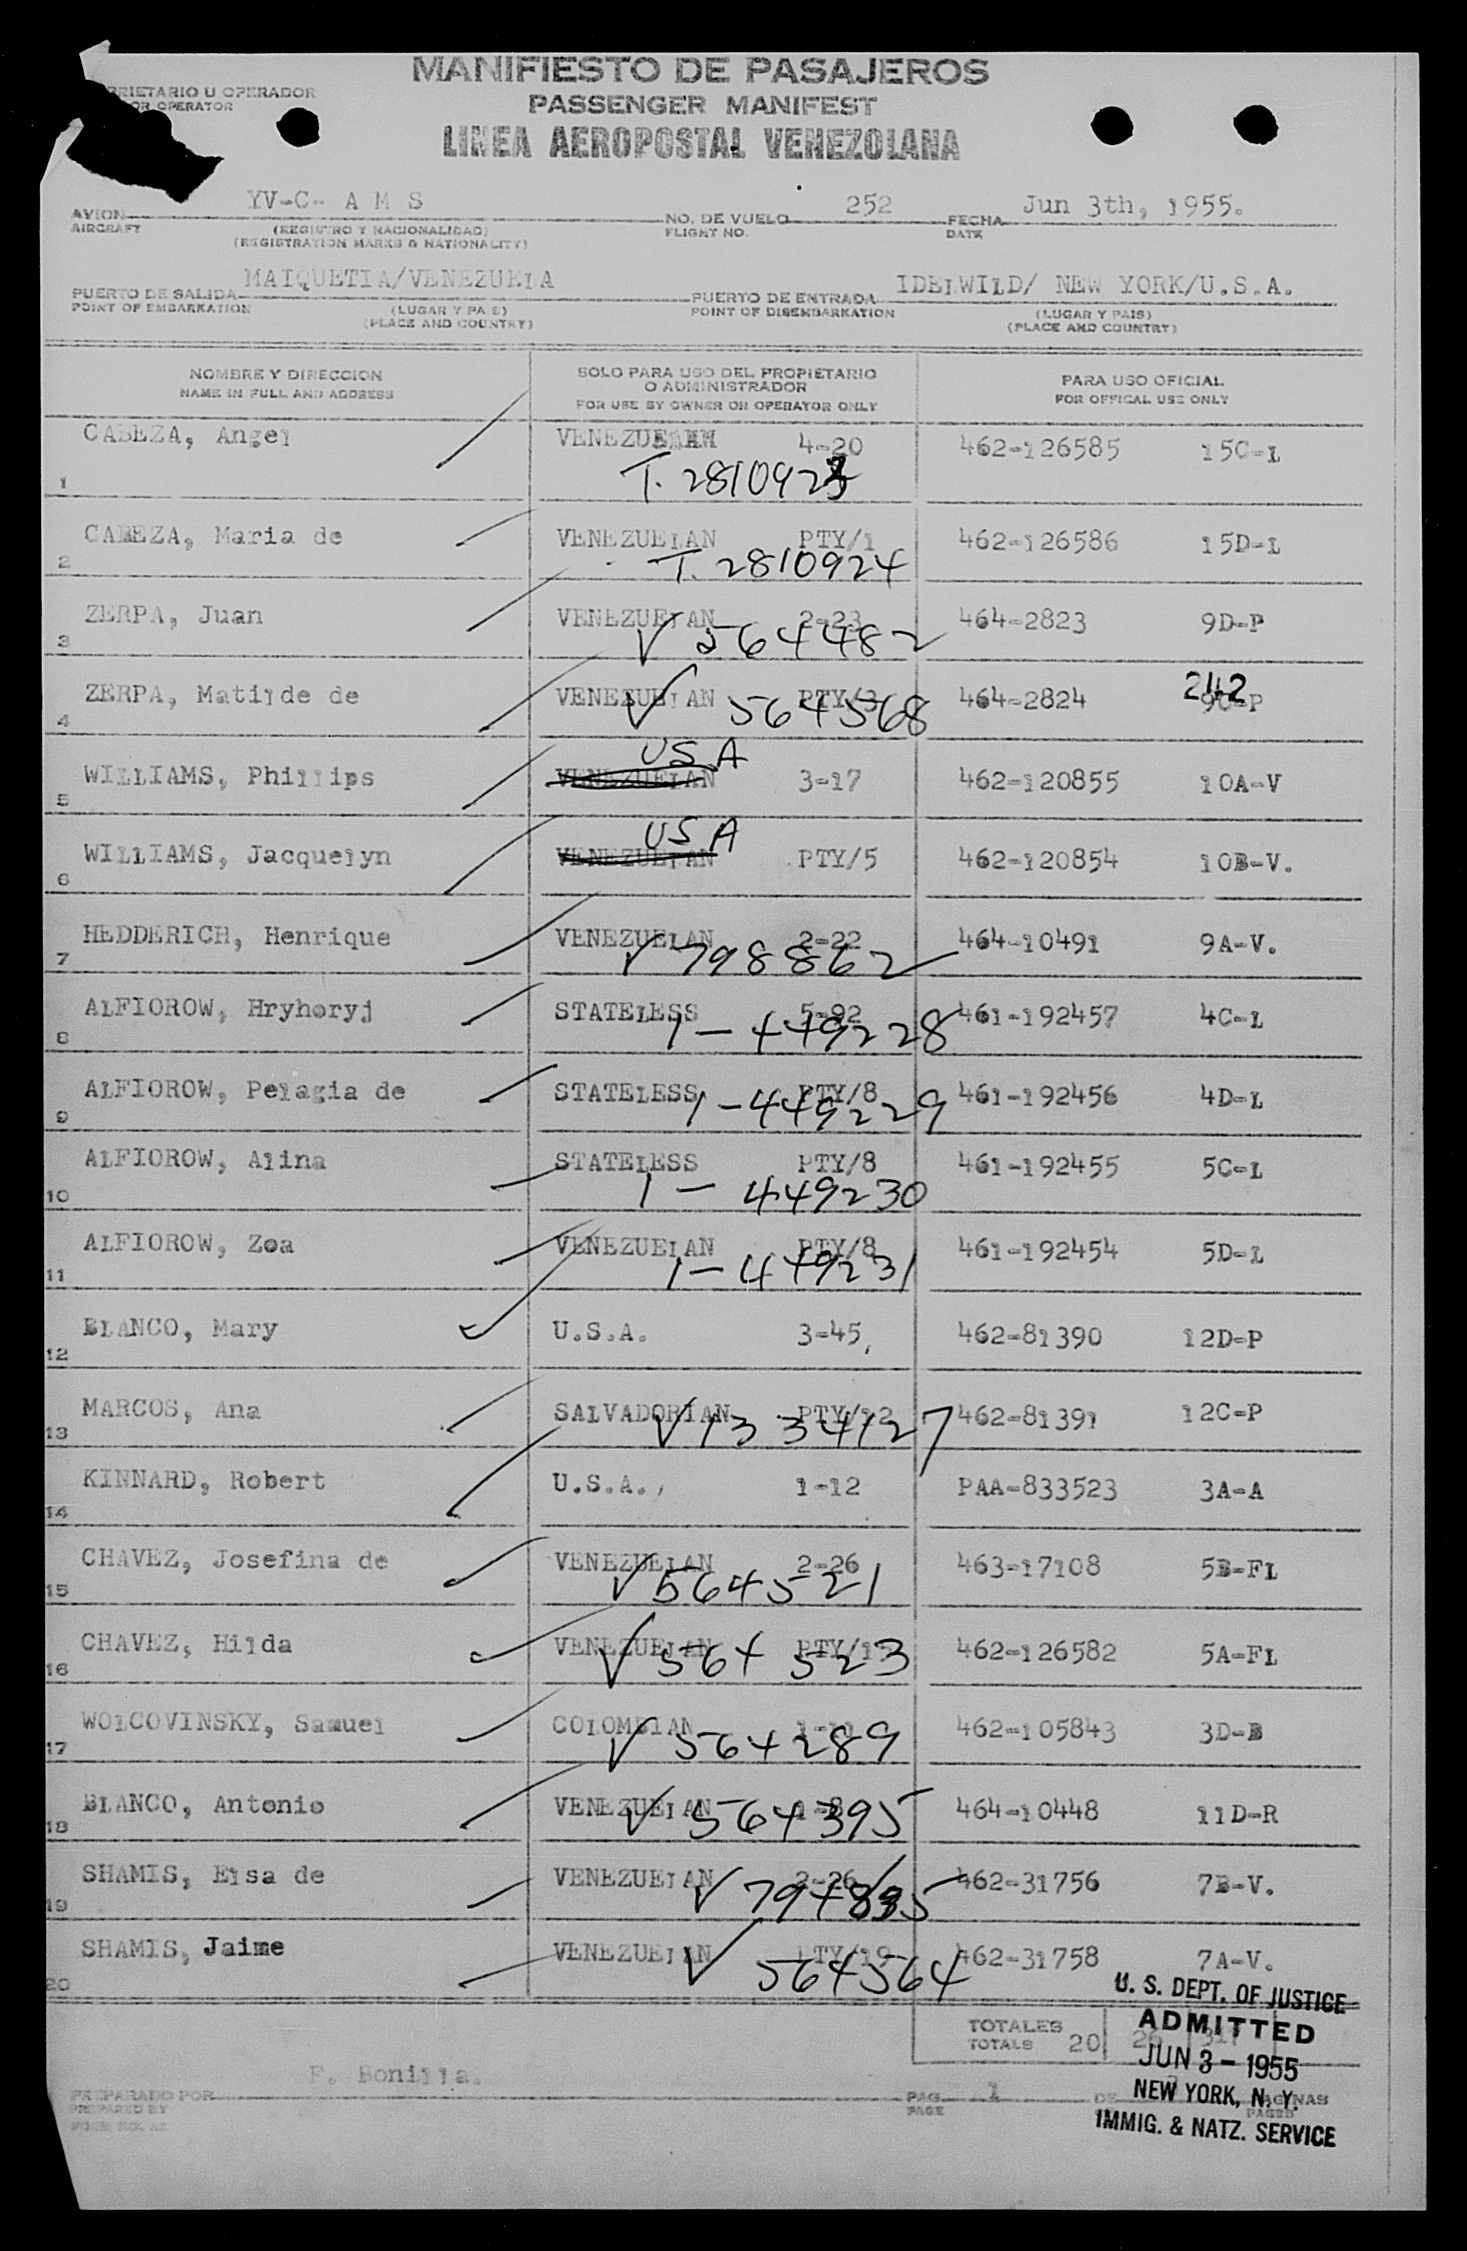 MANIFIESTO DE PASAJEROS
RIETARIO U OPERADOR
OR OPERATOR
PASSENGER MANIFEST
LINEA AEROPOSTAL VENEZOLANA
AVION AIRCRAFT YV-C- A M S NO. DE VUELO FLIGHT NO. 252 FECHA DATE Jun 3th, 1955.
(REGISTRO Y NACIONALIDAD)
(REGISTRATION MARKS & NATIONALITY)
PUERTO DE SALIDA POINT OF EMBARKATION MAIQUETIA/VENEZUELA PUERTO DE ENTRADA POINT OF DISEMBARKATION IDELWILD/ NEW YORK/U.S.A.
(LUGAR Y PAIS) (LUGAR Y PAIS)
(PLACE AND COUNTRY) (PLACE AND COUNTRY)
NOMBRE Y DIRECCION
NAME IN FULL AND ADDRESS
SOLO PARA USO DEL PROPIETARIO
O ADMINISTRADOR
FOR USE BY OWNER OR OPERATOR ONLY
PARA USO OFICIAL
FOR OFFICAL USE ONLY
1 CABEZA, Angel VENEZUELAN 4-20 462-126585 15C-L
T. 2810923
2 CABEZA, Maria de VENEZUELAN PTY/1 462-126586 15D-L
T. 2810924
3 ZERPA, Juan VENEZUELAN 2-23 464-2823 9D-P
V 564482
4 ZERPA, Matilde de VENEZUELAN PTY/3 464-2824 9C-P
V 564568 242
USA
5 WILLIAMS, Phillips VENEZUELAN 3-17 462-120855 10A-V
USA
6 WILLIAMS, Jacquelyn VENEZUELAN PTY/5 462-120854 10B-V.
7 HEDDERICH, Henrique VENEZUELAN 2-22 464-10491 9A-V.
V 798862
8 ALFIOROW, Hryhoryj STATELESS 5-92 461-192457 4C-L
1-449228
9 ALFIOROW, Pelagia de STATELESS PTY/8 461-192456 4D-L
1-449229
10 ALFIOROW, Alina STATELESS PTY/8 461-192455 5C-L
1-449230
11 ALFIOROW, Zoa VENEZUELAN PTY/8 461-192454 5D-L
1-449231
12 BLANCO, Mary U.S.A. 3-45, 462-81390 12D-P
13 MARCOS, Ana SALVADORIAN PTY/12 462-81391 12C-P
V 1334127
14 KINNARD, Robert U.S.A., 1-12 PAA-833523 3A-A
15 CHAVEZ, Josefina de VENEZUELAN 2-26 463-17108 5B-FL
V 564521
16 CHAVEZ, Hilda VENEZUELAN PTY/1 462-126582 5A-FL
V 564523
17 WOLCOVINSKY, Samuel COLOMBIAN 462-105843 3D-B
V 564289
18 BLANCO, Antonio VENEZUELAN 464-10448 11D-R
V 564395
19 SHAMIS, Elsa de VENEZUELAN 2-26 462-31756 7B-V.
V 794835
20 SHAMIS, Jaime VENEZUELAN PTY/19 462-31758 7A-V.
V 564564
U. S. DEPT. OF JUSTICE
ADMITTED
JUN 3 - 1955
NEW YORK, N. Y.
IMMIG. & NATZ. SERVICE
TOTALES
TOTALS 20
PREPARADO POR
PREPARED BY F. Bonilla.
PAG. PAGE 1 DE PAGINAS PAGES